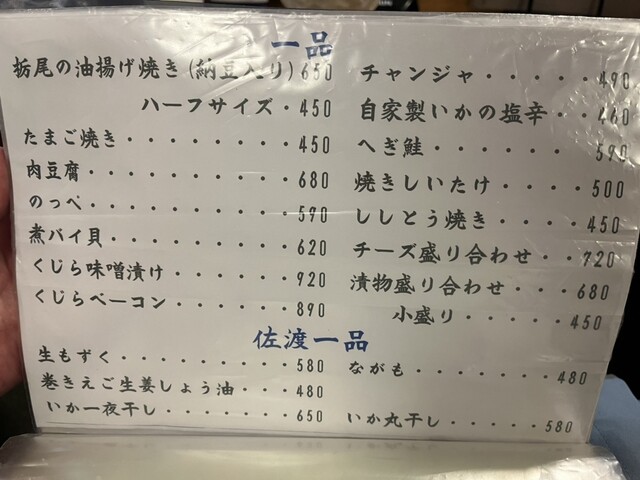 一品
栃尾の油揚げ焼き(納豆入り)650
ハーフサイズ・450
たまご焼き・・・・・・・・450
肉豆腐・・・・・・・・・・680
のっぺ・・・・・・・・・・590
煮バイ貝・・・・・・・・・620
くじら味噌漬け・・・・・・920
くじらベーコン・・・・・・890
チャンジャ・・・・・490
自家製いかの塩辛・・460
へぎ鮭・・・・・・・590
焼きしいたけ・・・・500
ししとう焼き・・・・450
チーズ盛り合わせ・・720
漬物盛り合わせ・・・680
小盛り・・・・・450
佐渡一品
生もずく・・・・・・・・580
巻きえご生姜しょう油・・480
いか一夜干し・・・・・・650
ながも・・・・・・・480
いか丸干し・・・・・580